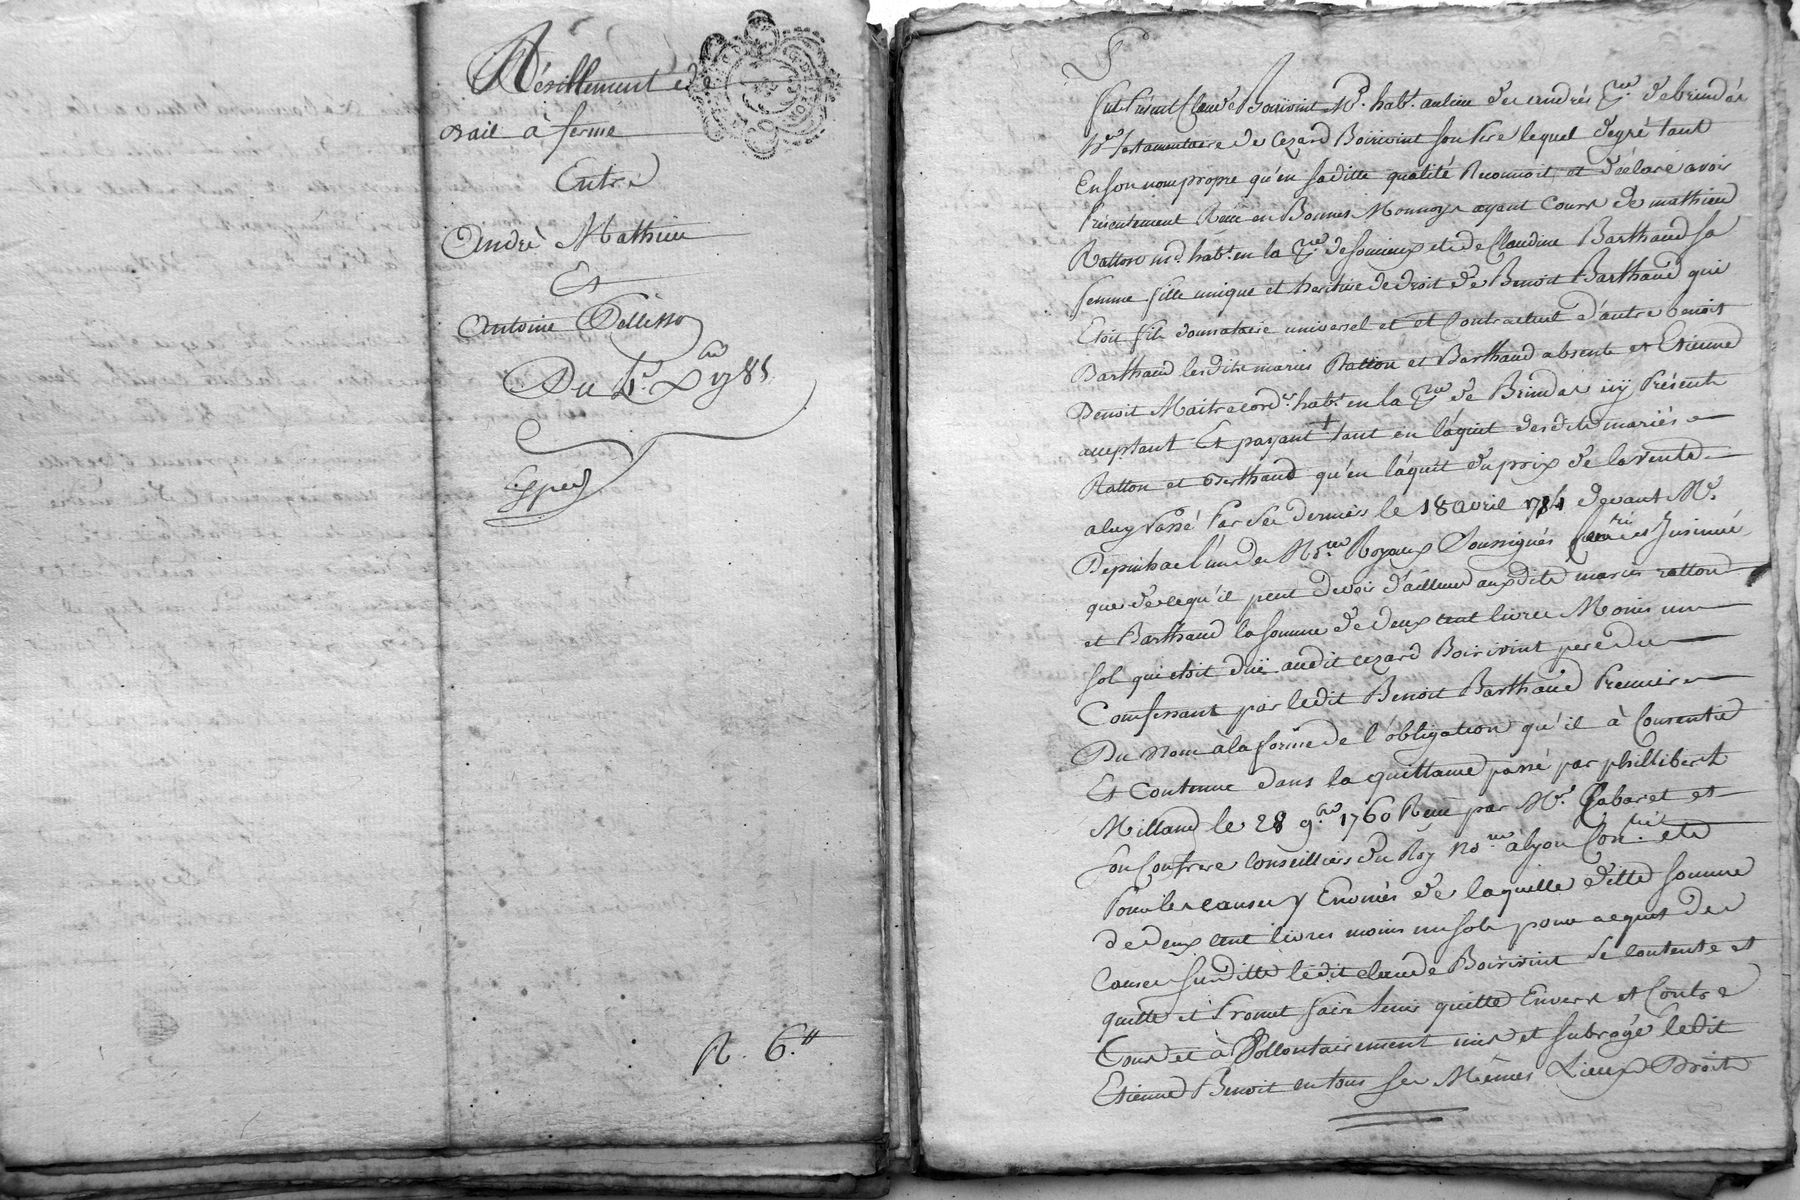 Résillement de
bail à ferme
Entre
André Mathieu
Et
Antoine
Du 4e. Xbre 1785
Exped
R. 6.tt
fut Présent Claude Boirivint Md. habt. au lieu des andrés psse. de brindas
her. testamentaire de Cezard Boirivint son Pere lequel de gré tant
En son nom propre qu'en sa ditte qualité Reconnoit et déclare avoir
Présentement Reçu en Bonnes Monnoys ayant Cours de mathieu
Ratton md. habt. en la psse. de et de Claudine Barthaud sa
femme fille unique et heritiere de droit de Benoit Barthaud qui
Etoit fils donnataire universel et et Contractuel d'autre benoit
Barthaud lesdits mariés Ratton et Barthaud absents et Etienne
Benoit Maitre cordr. habt. en la psse. de Brindas icy Présent
acceptant Et payant + tant en l'aquit desdits mariés
Ratton et Berthaud qu'en l'aquit du prix de la vente
a luy Passé Par ses derniers le 18 avril 1784 devant Me.
l'un des Nores. Royaux Soussignés et Insinué
que de ce qu'il peut devoir d'ailleurs auxdits mariés ratton
et Barthaud la somme de deux cent livres Moins un
sol qui etoit düe audit cezard Boirivint pere du
Confessant par ledit Benoit Barthaud Premier
Du Nom à la forme de l'obligation qu'il à Consentie
Et Contenue dans la quittance passé par phillibert
Milland le 28 9bre 1760 Reçu par Me. Gabaret et
son Confrere Conseillers du Roy nores. à lyon Conté. et
Pour les causes y Enoncés de laquelle ditte somme
de deux cent livres moins un sols pour acquit des
Causes susditte ledit claude Boirivint se contente et
quitte et Promet faire tenir quitte Envers et Contre
Tous et à Vollontairement mis et subrogé ledit
Etienne Benoit en tous ses Mêmes Lieux Droits